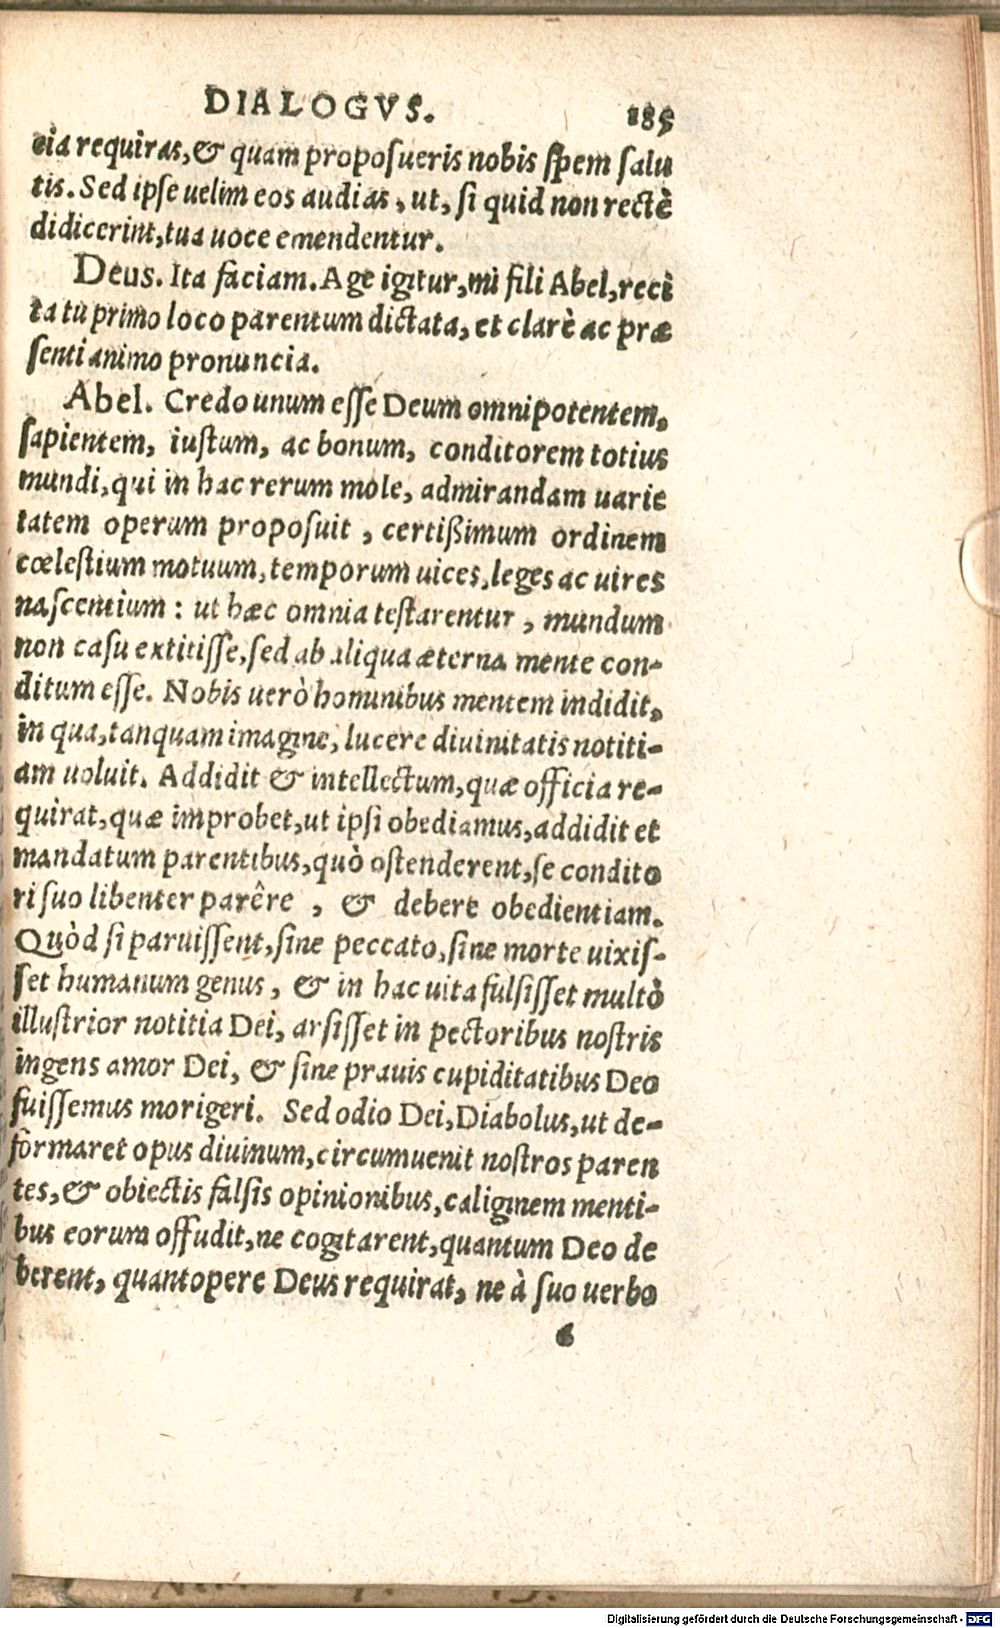 DIALOGVS. 185
cia requiras, & quam proposueris nobis spem salu
tis. Sed ipse uelim eos audias, ut, si quid non rectè
didicerint, tua uoce emendentur.
Deus. Ita faciam. Age igitur, mi fili Abel, reci
ta tu primo loco parentum dictata, et clarè ac præ
senti animo pronuncia.
Abel. Credo unum esse Deum omnipotentem,
sapientem, iustum, ac bonum, conditorem totius
mundi, qui in hac rerum mole, admirandam uarie
tatem operum proposuit, certißimum ordinem
cœlestium motuum, temporum uices, leges ac uires
nascentium: ut hæc omnia testarentur, mundum
non casu extitisse, sed ab aliqua æterna mente con-
ditum esse. Nobis uerò hominibus mentem indidit,
in qua, tanquam imagine, lucere diuinitatis notiti-
am uoluit. Addidit & intellectum, quæ officia re-
quirat, quæ improbet, ut ipsi obediamus, addidit et
mandatum parentibus, quò ostenderent, se condito
ri suo libenter parêre, & debere obedientiam.
Quòd si paruissent, sine peccato, sine morte uixis-
set humanum genus, & in hac uita fulsisset multò
illustrior notitia Dei, arsisset in pectoribus nostris
ingens amor Dei, & sine prauis cupiditatibus Deo
fuissemus morigeri. Sed odio Dei, Diabolus, ut de-
formaret opus diuinum, circumuenit nostros paren
tes, & obiectis falsis opinionibus, caliginem menti-
bus eorum offudit, ne cogitarent, quantum Deo de
berent, quantopere Deus requirat, ne à suo uerbo
6
Digitalisierung gefördert durch die Deutsche Forschungsgemeinschaft - DFG